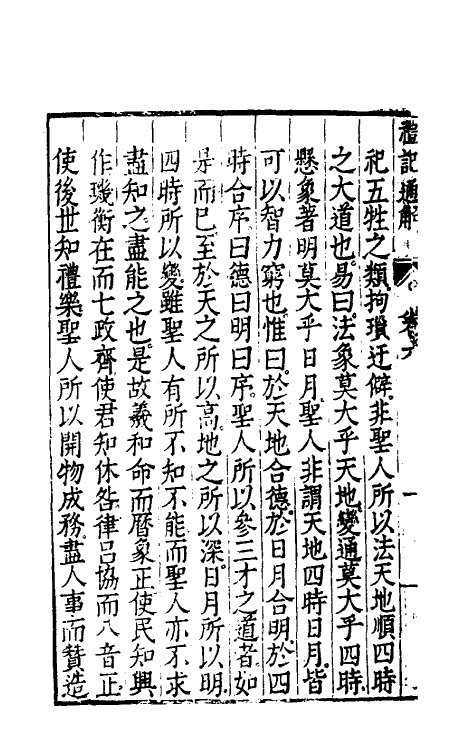 禮記通解
卷六
祀五牲之類拘瑣迂僻非聖人所以法天地順四時
之大道也易曰法象莫大乎天地變通莫大乎四時
懸象著明莫大乎日月聖人非謂天地四時日月皆
可以智力窮也惟曰於天地合德於日月合明於四
時合序曰德曰明曰序聖人所以參三才之道者如
是而已至於天之所以高地之所以深日月所以明
四時所以變雖聖人有所不知不能而聖人亦不求
盡知之盡能之也是故羲和命而曆象正使民知興
作璣衡在而七政齊使君知休咎律呂協而八音正
使後世知禮樂聖人所以開物成務盡人事而贊造